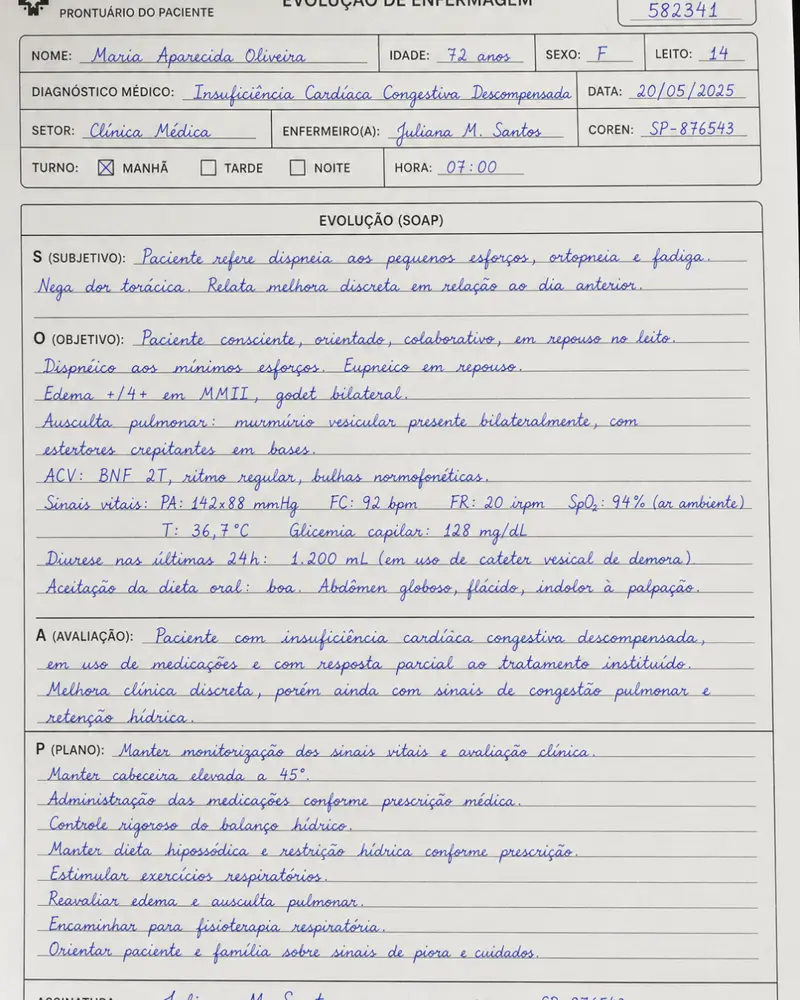 EVOLUÇÃO DE ENFERMAGEM
582341
PRONTUÁRIO DO PACIENTE
NOME: Maria Aparecida Oliveira IDADE: 72 anos SEXO: F LEITO: 14
DIAGNÓSTICO MÉDICO: Insuficiência Cardíaca Congestiva Descompensada DATA: 20/05/2025
SETOR: Clínica Médica ENFERMEIRO(A): Juliana M. Santos COREN: SP-876543
TURNO: ☒ MANHÃ ☐ TARDE ☐ NOITE HORA: 07:00
EVOLUÇÃO (SOAP)
S (SUBJETIVO): Paciente refere dispneia aos pequenos esforços, ortopneia e fadiga.
Nega dor torácica. Relata melhora discreta em relação ao dia anterior.
O (OBJETIVO): Paciente consciente, orientado, colaborativo, em repouso no leito.
Dispnéico aos mínimos esforços. Eupneico em repouso.
Edema +/4+ em MMII, godet bilateral.
Ausculta pulmonar: murmúrio vesicular presente bilateralmente, com
estertores crepitantes em bases.
ACV: BNF 2T, ritmo regular, bulhas normofonéticas.
Sinais vitais: PA: 142x88 mmHg FC: 92 bpm FR: 20 irpm SpO₂: 94% (ar ambiente)
T: 36,7°C Glicemia capilar: 128 mg/dL
Diurese nas últimas 24h: 1.200 mL (em uso de cateter vesical de demora).
Aceitação da dieta oral: boa. Abdômen globoso, flácido, indolor à palpação.
A (AVALIAÇÃO): Paciente com insuficiência cardíaca congestiva descompensada,
em uso de medicações e com resposta parcial ao tratamento instituído.
Melhora clínica discreta, porém ainda com sinais de congestão pulmonar e
retenção hídrica.
P (PLANO): Manter monitorização dos sinais vitais e avaliação clínica.
Manter cabeceira elevada a 45°.
Administração das medicações conforme prescrição médica.
Controle rigoroso do balanço hídrico.
Manter dieta hipossódica e restrição hídrica conforme prescrição.
Estimular exercícios respiratórios.
Reavaliar edema e ausculta pulmonar.
Encaminhar para fisioterapia respiratória.
Orientar paciente e família sobre sinais de piora e cuidados.